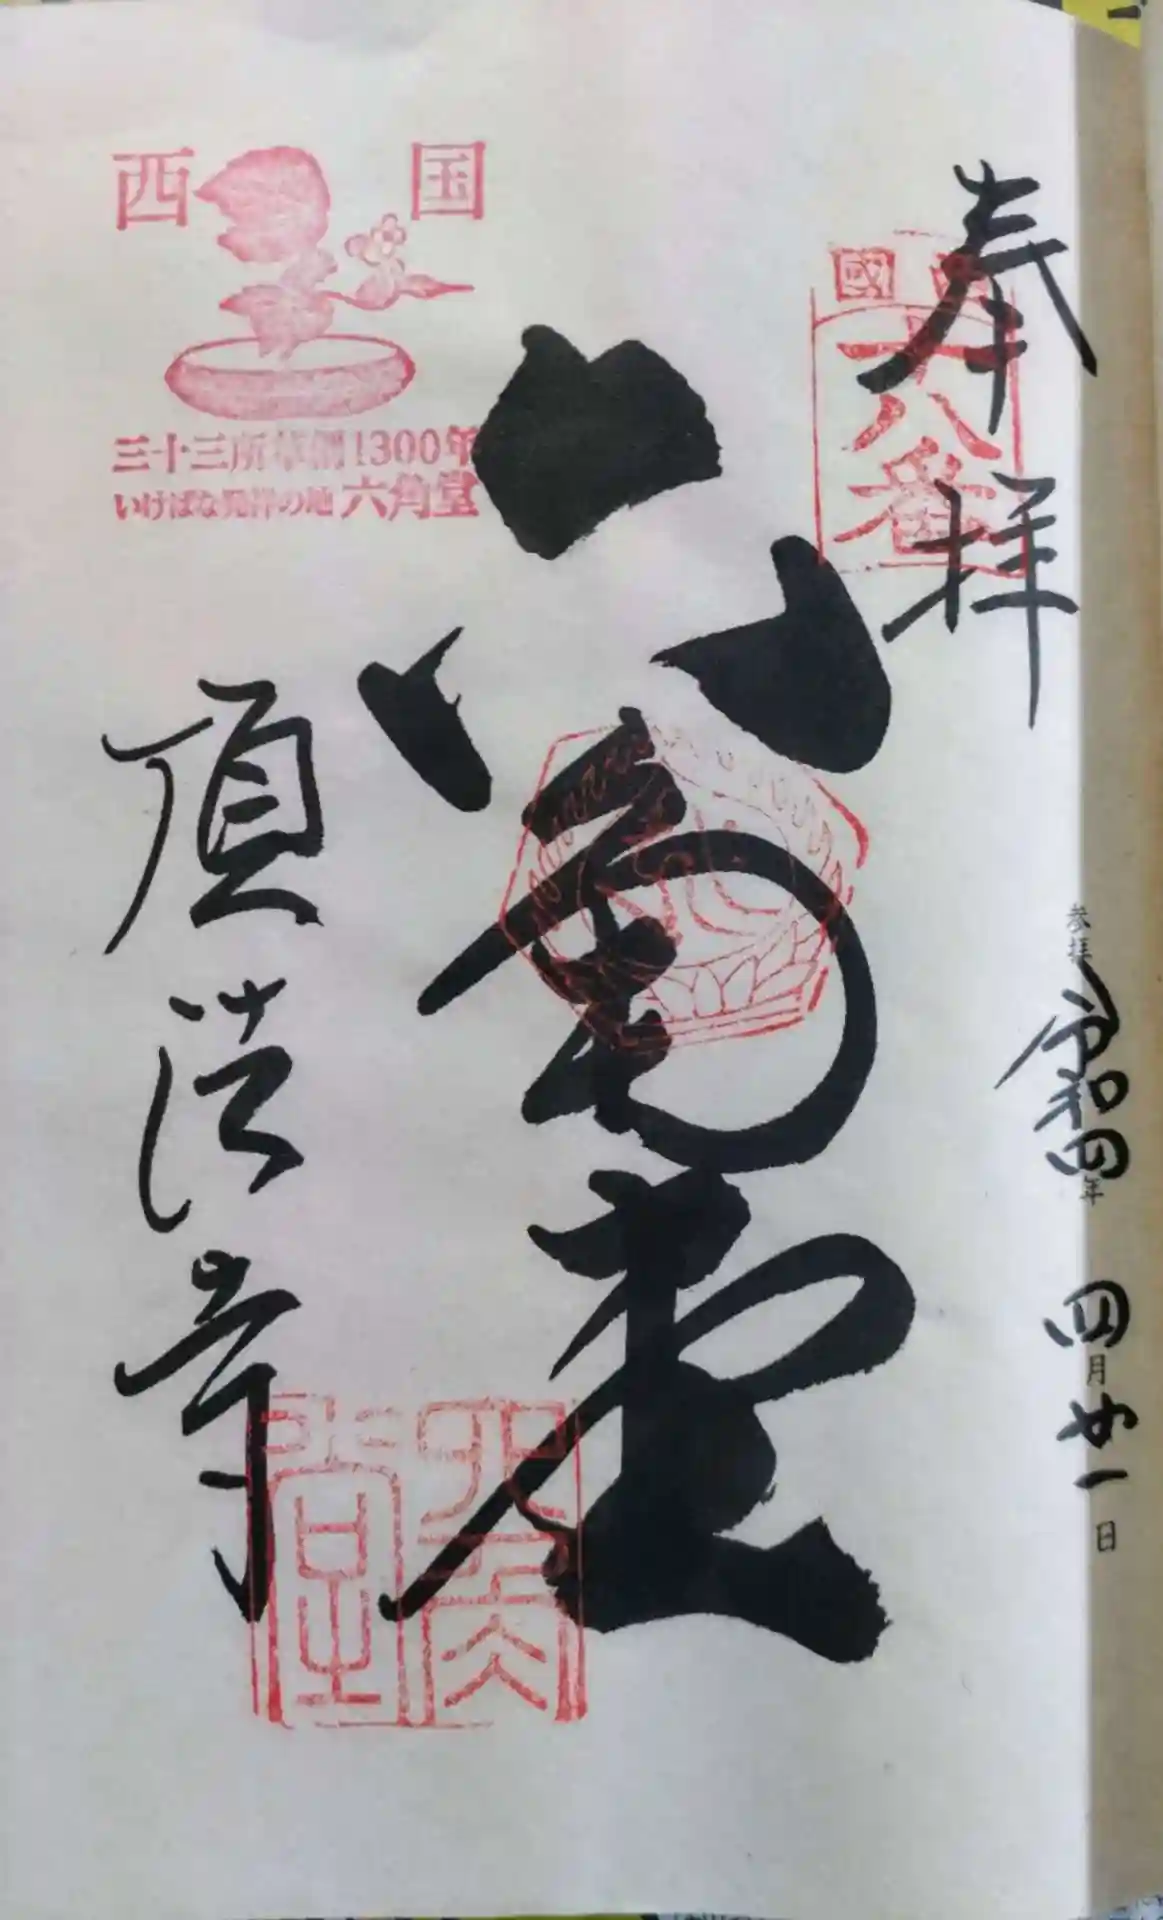 奉拝
西國
十八番
六角堂
頂法寺
西国
三十三所草創1300年
いけばな発祥の地 六角堂
六角堂
参拝 令和四年 四月廿一日